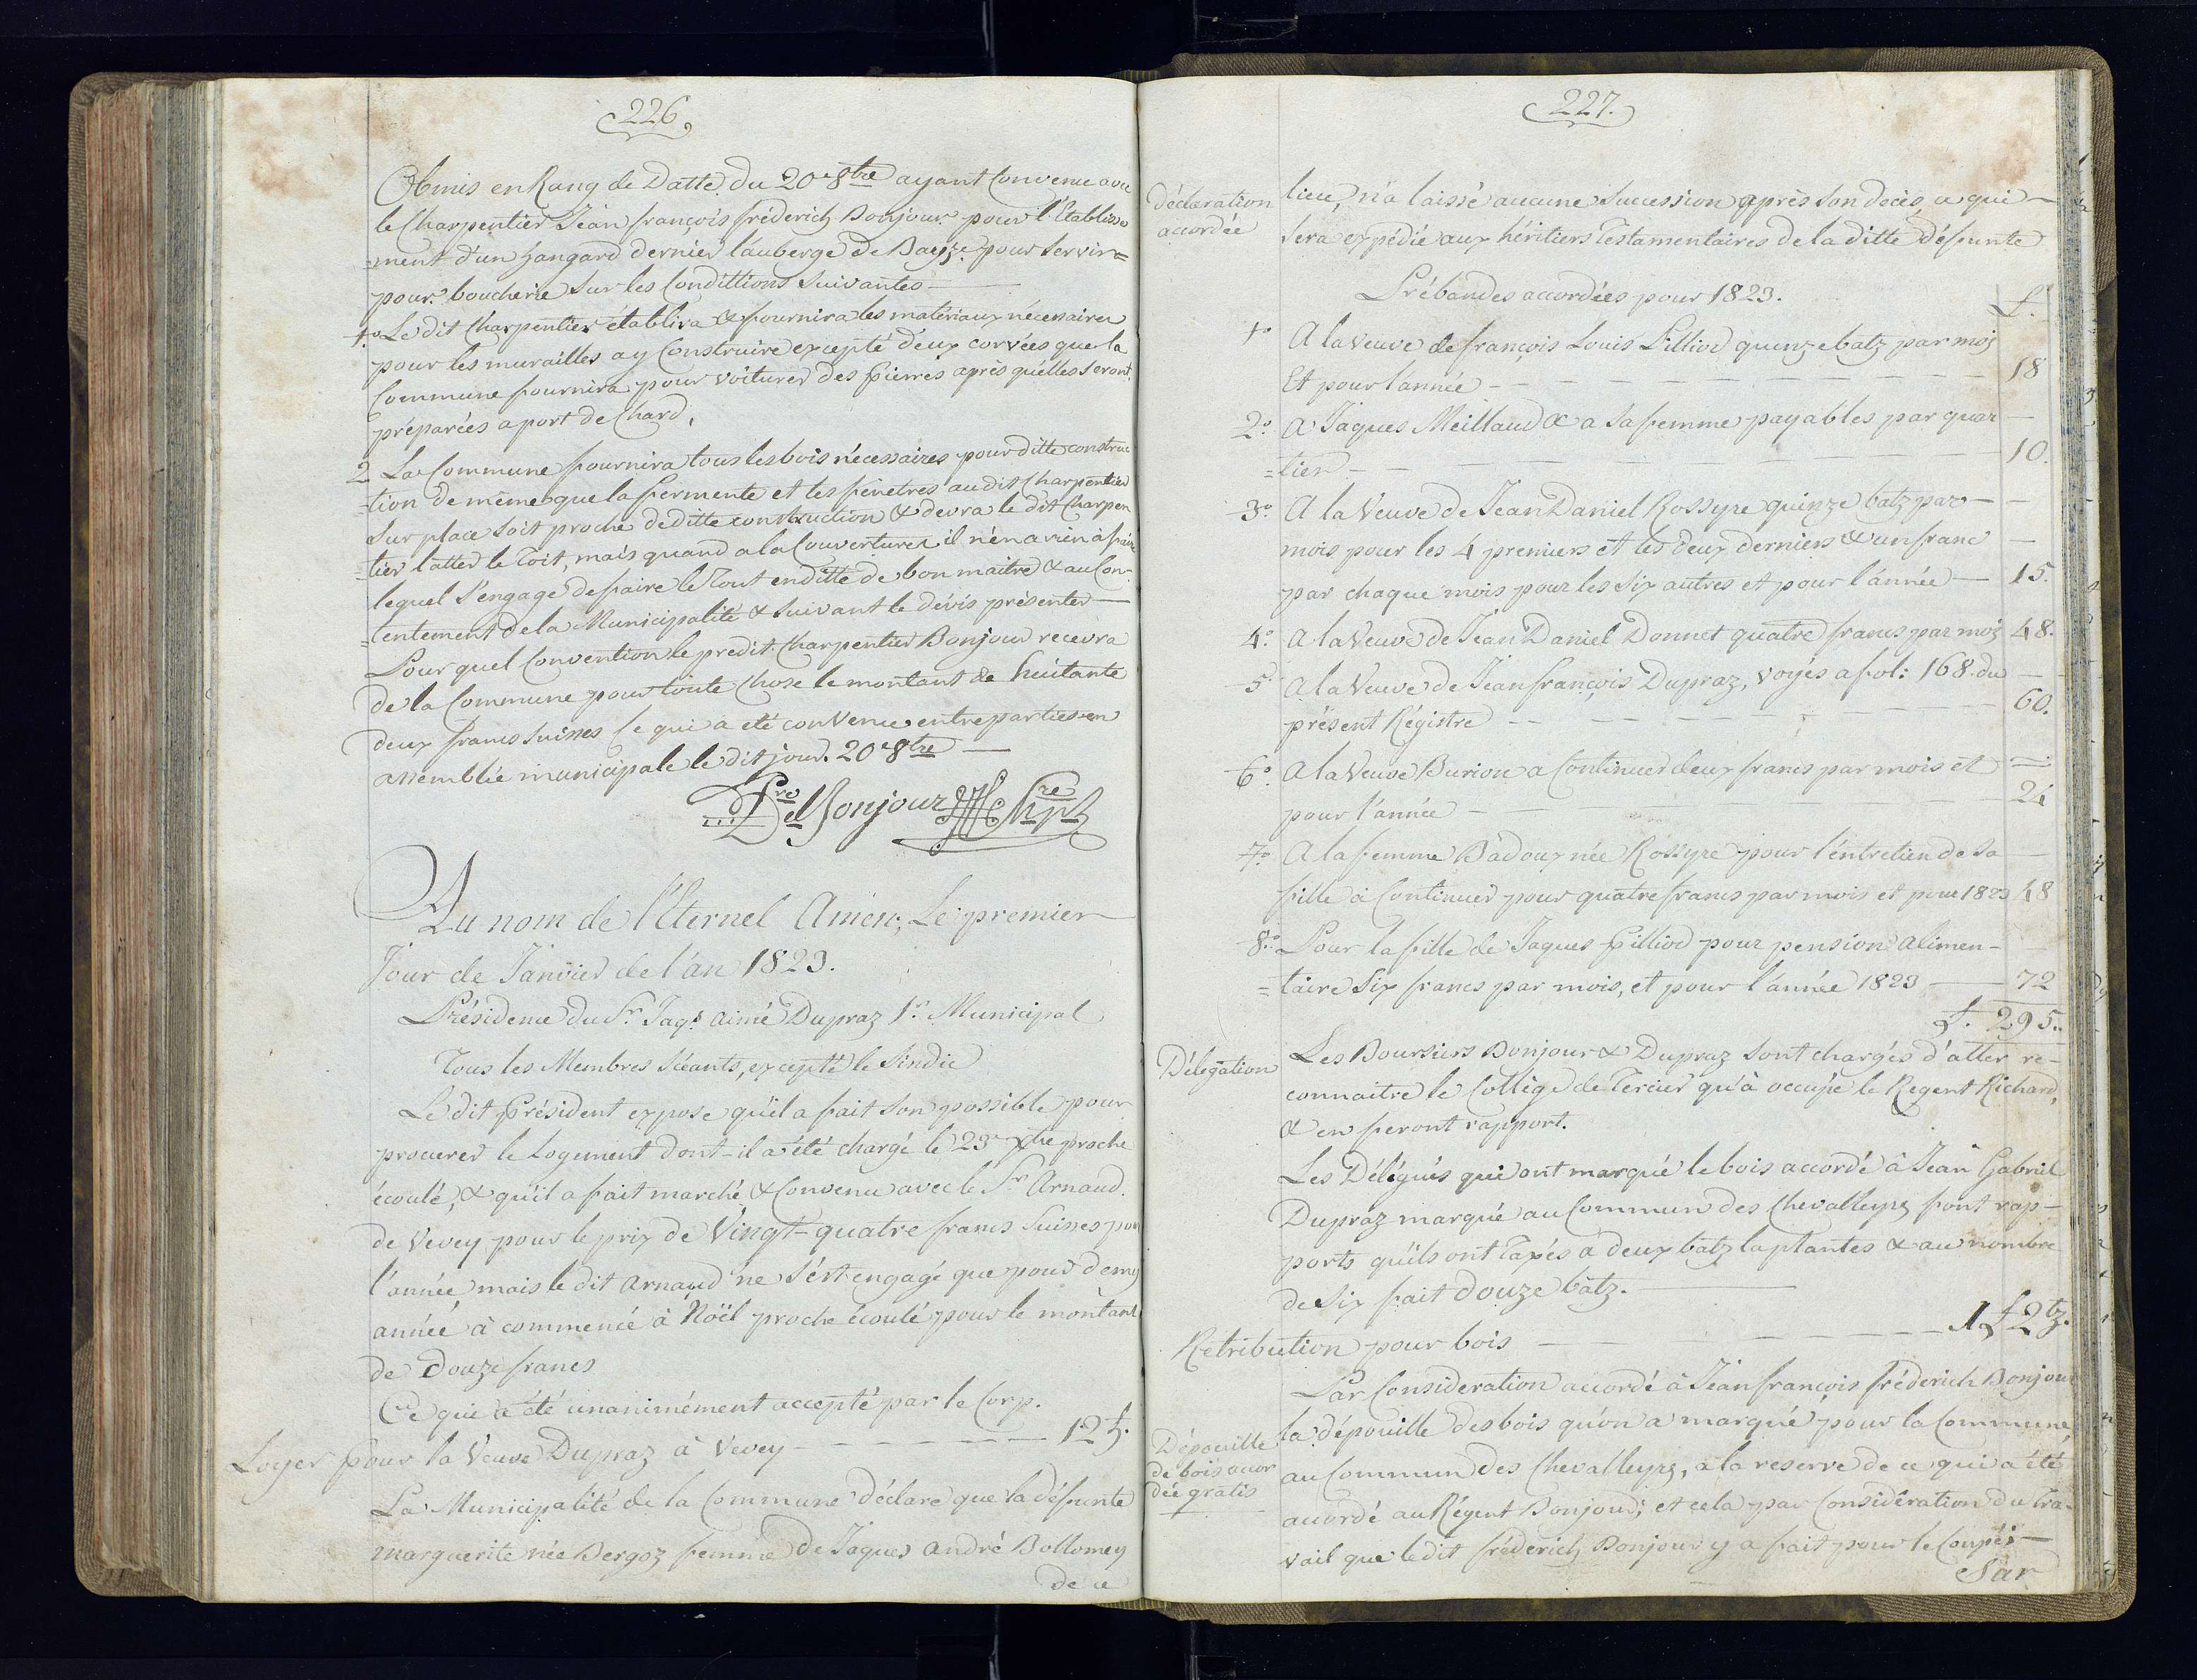 226.
Obmis en Rang de Datte du 20e 8bre ayant Convenu avec
le Charpentier Jéan françois fréderich Bonjour pour l'Etablisse
=ment d'un hangard dernier l'auberge de Bayz: pour Servir=
pour boucherie Sur les Condittions Suivantes—
1o Le dit Charpentier établira & fournira les matériaux nécessaires
pour les murailles a y Construire excepté deux corvées que la
Commune fournira pour voiturer des pierres après qu'elles seront
préparées a port de Chard.
2 La Commune fournira tous les bois nécessaires pour ditte construc
=tion de même que la fermente et les fénetres au dit Charpentier
Sur place soit proche de ditte construction & devra le dit Charpen
=tier latter le Toit, mais quand a la Couverture il n'en a rien a faire
lequel S'engage de faire le Tout en ditte de bon maitre & au Con-
=tentement de la Municipalité & Suivant le dévis présenter—
Pour quel Convention le prédit Charpentier Bonjour recevra
de la Commune pour toute Chose le montant de huitante
deux francs suisses Ce qui a été convenu entre parties en
assemblée municipale le dit jour. 20e 8bre—
Del Bonjour
Au nom de l'Eternel Amen; Le premier
Jour de Janvier de l'an 1823.
Présidence du Sr. Jaqs. aimé Dupraz 1r. Municipal
Tous les Membres Séants, excepté le Sindic
Le dit Président expose qu'il a fait son possible pour
procurer le Logement dont-il a été chargé le 23e Xbre proche
écoulé, & qu'il a fait marché & Convenu avec le Sr Arnaud.
de Vevey pour le prix de Vingt-quatre francs Suisses pour
l'année mais le dit Arnaud ne s'est engagé que pour demy
année à commencé à Noël proche écoulé pour le montant
de Douze francs
Ce qui a été unanimément accepté par le Corp.
Loyer pour la Veuve Dupraz à Vevey — — — — — 12 f.
La Municipalité de la Commune déclare que la défunte
marguerite née Bergoz femme de Jaques André Bollomey
de ce
227.
déclaration
accordée
lieu, n'a laissé aucune Sucession après son décès, ce qui—
Sera expédié aux héritiers Testamentaires de la ditte défunte
Prébandes accordées pour 1823.
f.
1o A la Veuve de françois Louis Pilliod quinze batz par mois
Et pour l'année — — — — — — 18
2o. A Jaques Meillaud & a sa femme payables par quar
=tier — — — — — — 10.
3o. A la Veuve de Jean Daniel Rossyre quinze batz par—
mois pour les 4 premiers et les deux derniers & un franc
par chaque mois pour les Six autres et pour l'année — 15.
4o. A la Veuve de Jean Daniel Donnet quatre francs par mois 48.
5o A la Veuve de Jean françois Dupraz, voyés a fol: 168. du
présent Régistre — — — — — 60.
6o. A la Veuve Burion a Continuer deux francs par mois et
pour l'année — — — — — 24
7o. A la femme Badoux née Rossyre pour l'entretien de sa
fille à Continuer pour quatre francs par mois et pour 1823 48
8o. Pour la fille de Jaques Pilliod pour pension alimen-
=taire Six francs par mois, et pour l'année 1823 — 72
f. 295..
Délegation
Les Boursiers Bonjour & Dupraz Sont chargés d'aller re-
connaitre le Collège de Tercier qu'à occupé le Regent Richard,
& en feront rapport.
Les Délégués qui ont marqué le bois accordé à Jean Gabriel
Dupraz marqué au Commun des Chevalleyrs font rap-
ports qu'ils ont Taxés à deux batz la plantes & au nombre
de Six fait douze batz. —
Retribution pour bois — — — — 1 f 2 tz.
Par Consideration accordé à Jean françois fréderich Bonjour
Dépouille
de bois accor
dée gratis
la dépouille des bois qu'on a marqué pour la Commune,
au Commun des Chevalleyrs, a la reserve de ce qui a été
accordé au Régent Bonjour; et cela par Considération du Tra-
vail que le dit fréderich Bonjour y a fait pour le Coupés—
Sar